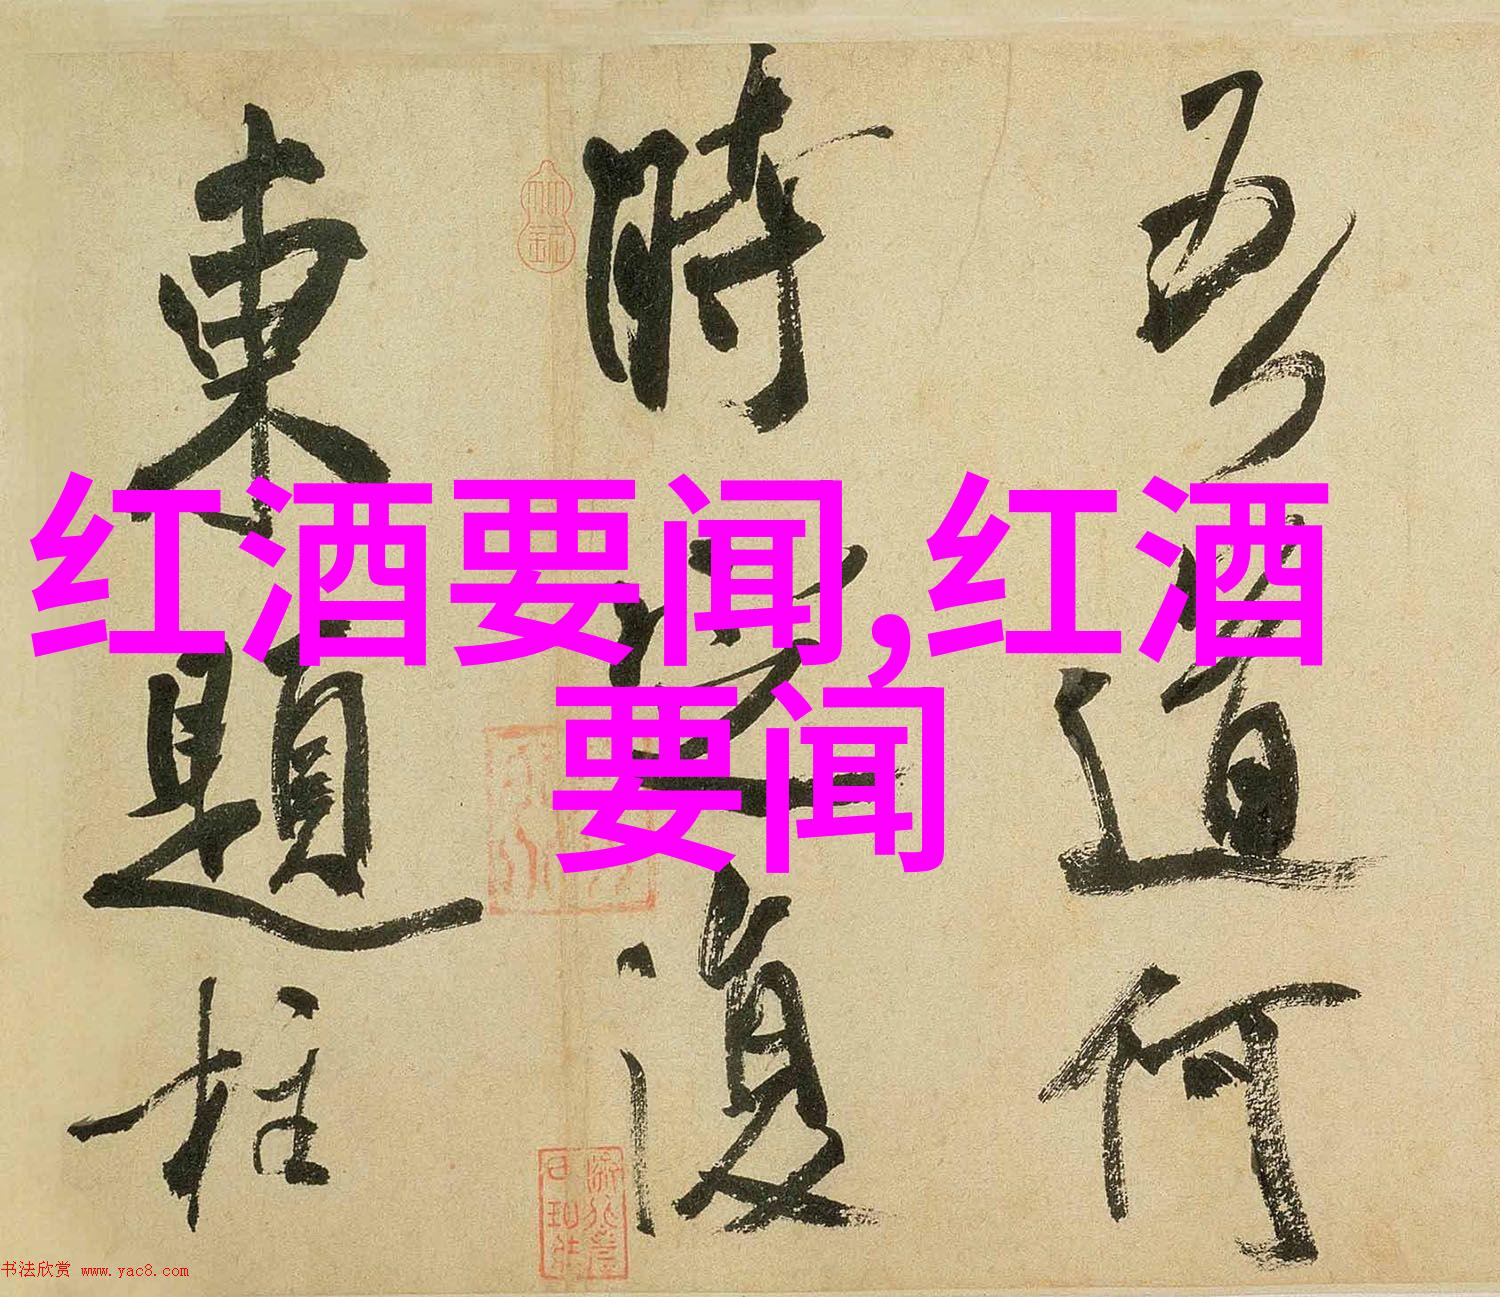 吾道何
時還復
東題柱
红酒要闻,红酒
要闻
书法欣赏 www.yac8.com